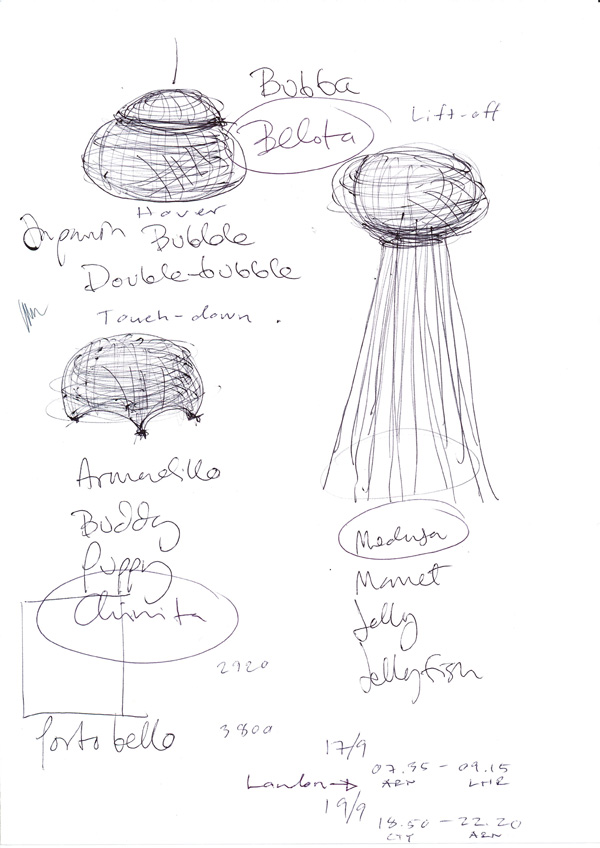 Bubba
Belota
Lift-off
Hover
Bubble
Double-bubble
Touch-down .
Armadillo
Buddy
Puppy
Medusa
Manet
Jelly
Jellyfish
2920
Portobello
3800
17/9
07.55 - 09.15
London → ARN LHR
19/9
18.50 - 22.20
CTY ARN